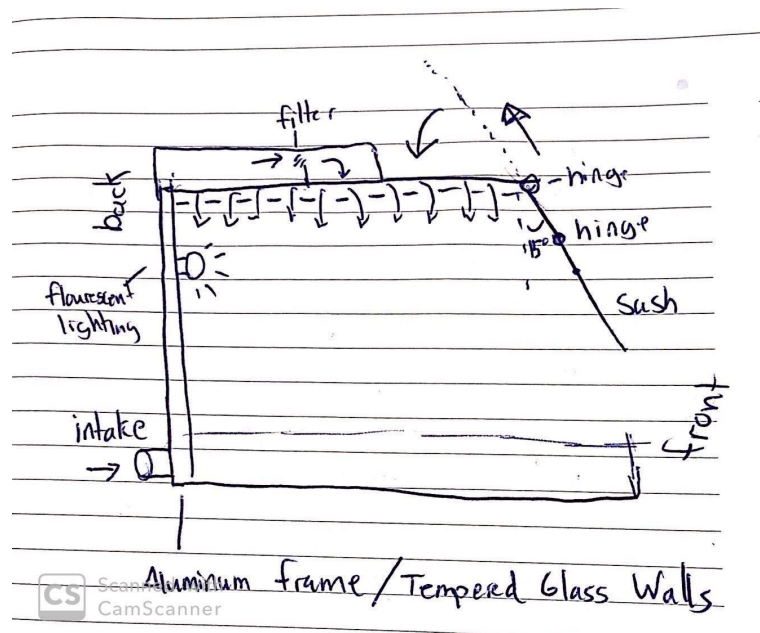 filter
back
hinge
hinge
15°
flourescent
lighting
sash
front
intake
Aluminum frame / Tempered Glass Walls
CS
Scanned with
CamScanner